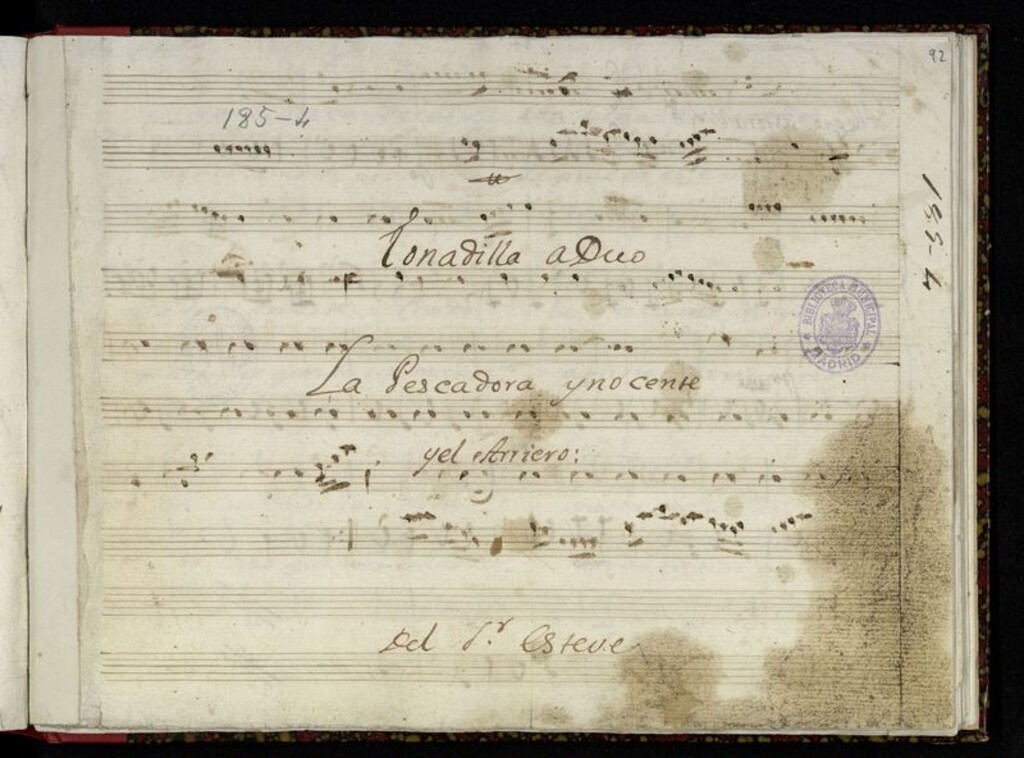 92
185-4
185-4
Tonadilla aDuo
BIBLIOTECA MUNICIPAL
MADRID
La Pescadora ynocente
yel Arriero:
Del S.r Esteve